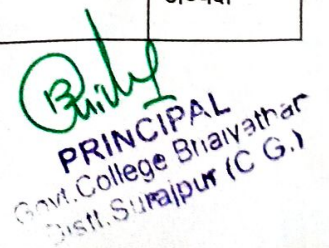 PRINCIPAL
Govt. College Bhaiyathan
Distt. Surajpur (C G.)